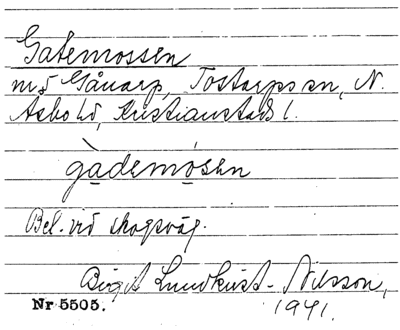 Gatemossen
må Gånarp, Tostarps sn, N.
Åsbo hd, Kristianstads l.
gàdemósen
Bel. vid skogsväg.
Birgit Lundkvist-Nilsson,
Nr 5505. 1941.